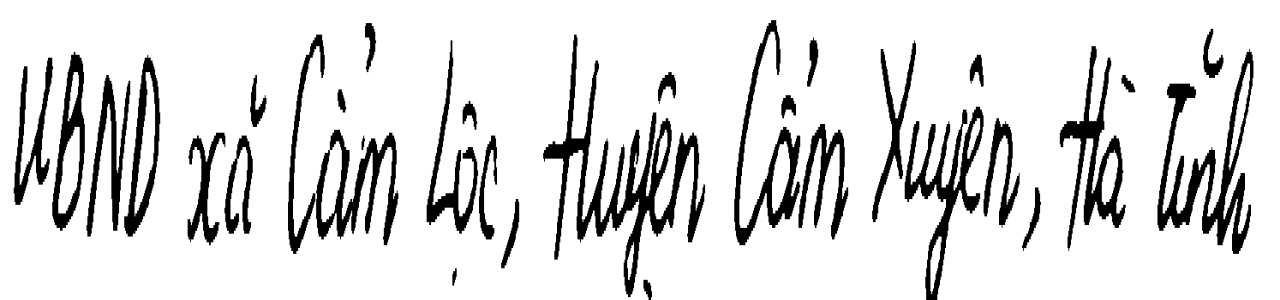 UBND xã Cẩm Lộc, Huyện Cẩm Xuyên, Hà Tĩnh